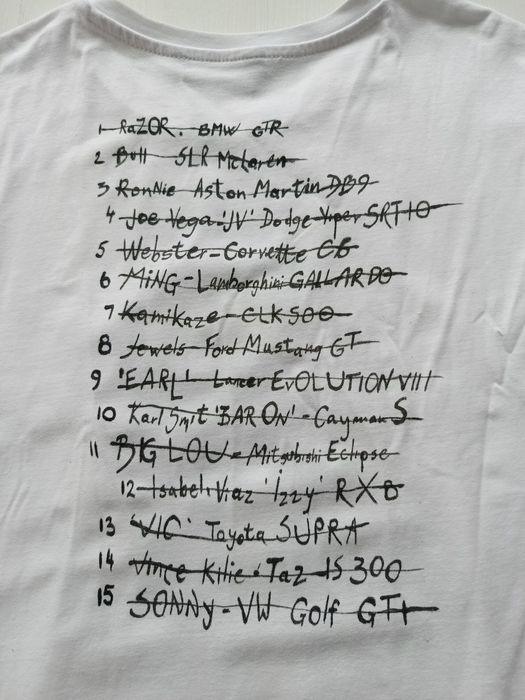 1 RaZOR. BMW GTR
2 Bull SLR Mclaren
3 RonNie Aston Martin DB9
4 Joe Vega 'JV' Dodge Viper SRT10
5 Webster-Corvette C6
6 MiNG-Lamborghini GALLARDO
7 Kamikaze-CLK500
8 Jewels-Ford Mustang GT
9 'EARL' Lancer EvOLUTION VIII
10 Karl Smit 'BARON'-Cayman S
11 BIG LOU-Mitsubishi Eclipse
12-Isabel Viaz 'Izzy' RX8
13 'VIC' Tayota SUPRA
14 Vince Kilic-Taz IS300
15 SONNy-VW Golf GTI